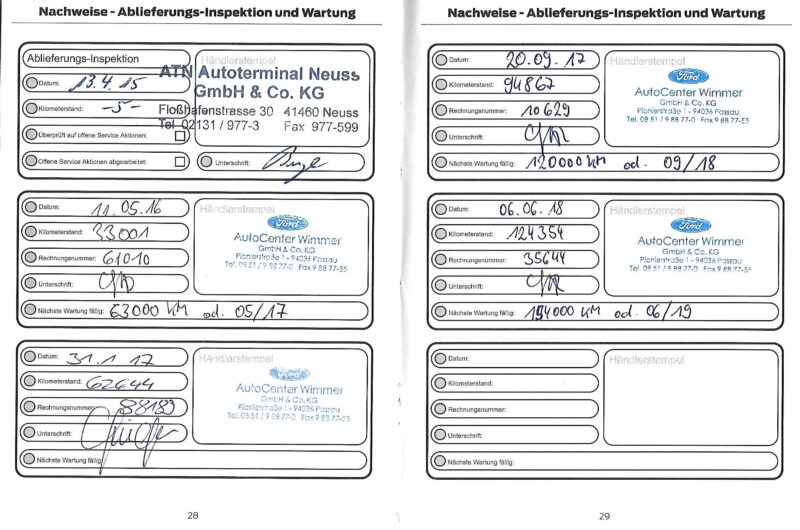 Nachweise - Ablieferungs-Inspektion und Wartung
Ablieferungs-Inspektion
Händlerstempel
Datum: 13.4.15
ATN Autoterminal Neuss
GmbH & Co. KG
Kilometerstand: -5-
Floßhafenstrasse 30 41460 Neuss
Tel. 02131 / 977-3 Fax 977-599
Überprüft auf offene Service Aktionen:
Offene Service Aktionen abgearbeitet-
Unterschrift:
Datum: 11.05.16
Händlerstempel
Ford
Kilometerstand: 33001
AutoCenter Wimmer
GmbH & Co. KG
Rechnungsnummer: 61010
Pionierstraße 1 - 94036 Passau
Tel. 08 51 / 9 88 77-0 Fax 9 88 77-55
Unterschrift:
Nächste Wartung fällig: 63000 KM od. 05/17
Datum: 31.1 17
Händlerstempel
Ford
Kilometerstand: 62644
AutoCenter Wimmer
GmbH & Co. KG
Rechnungsnummer: 88189
Pionierstraße 1 - 94036 Passau
Tel. 08 51 / 9 88 77-0 Fax 9 88 77-55
Unterschrift:
Nächste Wartung fällig:
28
Nachweise - Ablieferungs-Inspektion und Wartung
Datum: 20.09.17
Händlerstempel
Ford
Kilometerstand: 94867
AutoCenter Wimmer
GmbH & Co. KG
Rechnungsnummer: 10629
Pionierstraße 1 - 94036 Passau
Tel. 08 51 / 9 88 77-0 Fax 9 88 77-55
Unterschrift:
Nächste Wartung fällig: 120000 KM od. 09/18
Datum: 06.06.18
Händlerstempel
Ford
Kilometerstand: 124354
AutoCenter Wimmer
GmbH & Co. KG
Rechnungsnummer: 35644
Pionierstraße 1 - 94036 Passau
Tel. 08 51 / 9 88 77-0 Fax 9 88 77-55
Unterschrift:
Nächste Wartung fällig: 154000 KM od. 06/19
Datum:
Händlerstempel
Kilometerstand:
Rechnungsnummer:
Unterschrift:
Nächste Wartung fällig:
29